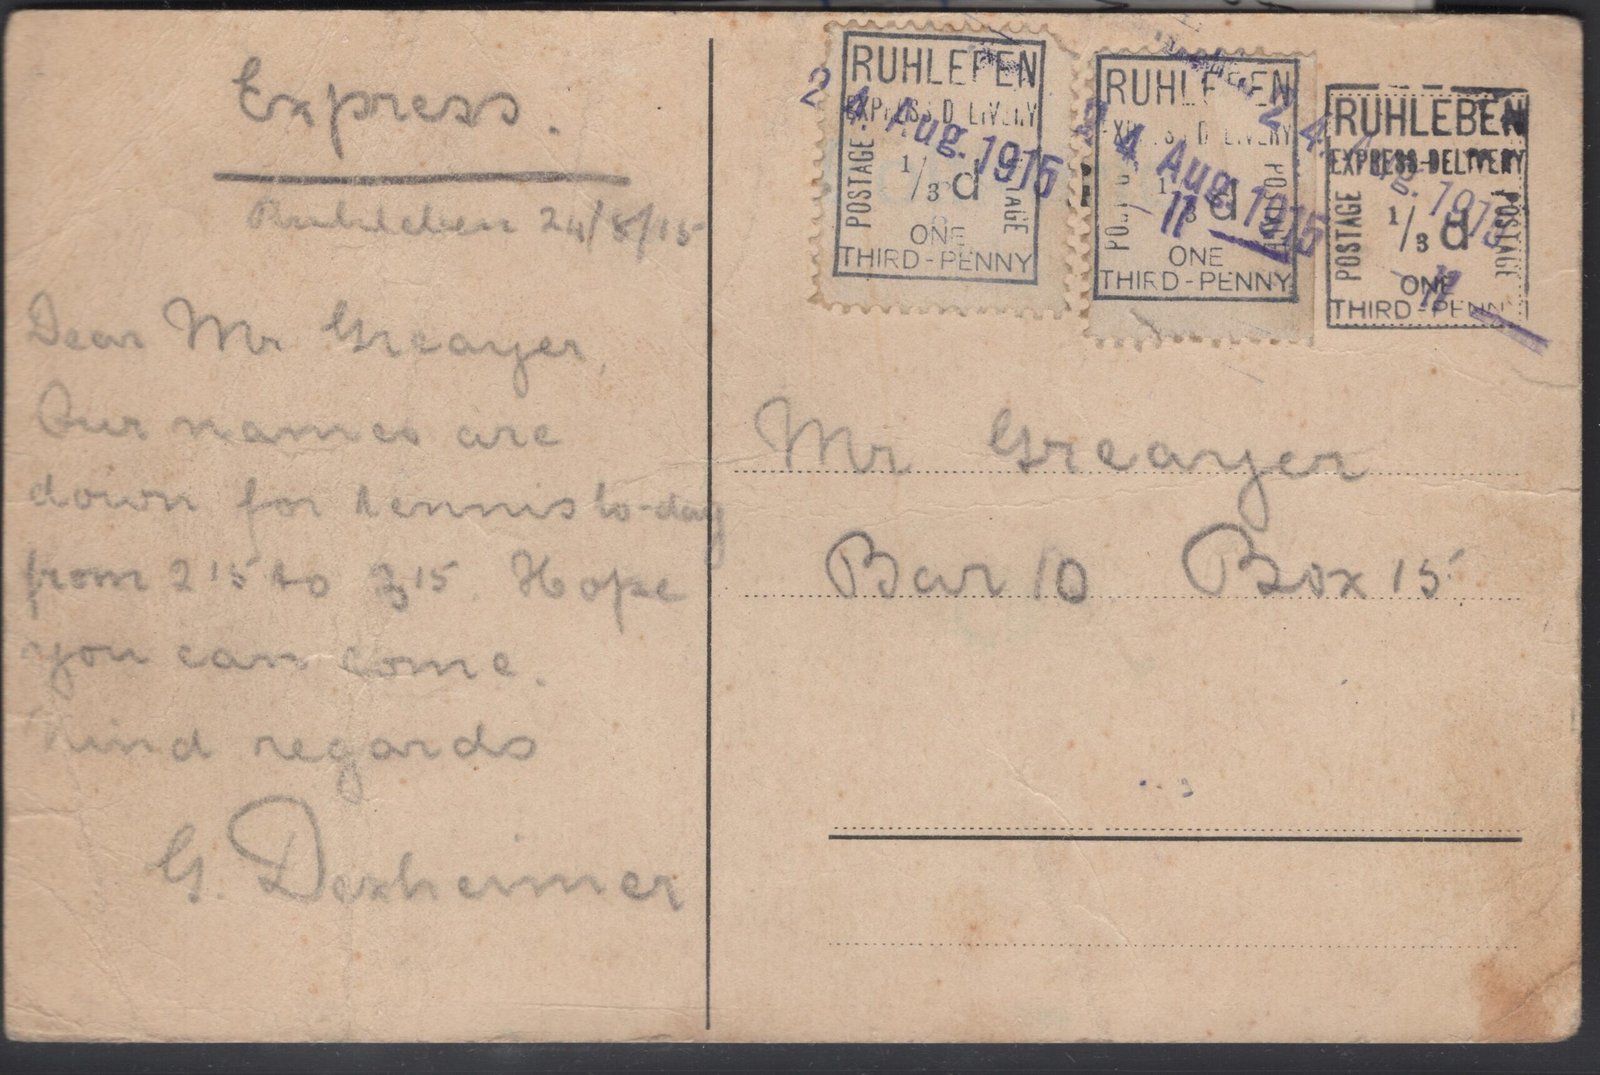 Express.
Ruhleben 24/8/15
Dear Mr Greayer,
Our names are
down for tennis to-day
from 2 15 to 3 15. Hope
you can come.
Kind regards
G. Dexheimer
RUHLEBEN
EXPRESS DELIVERY
POSTAGE
1/3 d
POSTAGE
ONE
THIRD-PENNY
24 Aug. 1915
RUHLEBEN
EXPRESS DELIVERY
POSTAGE
1/3 d
POSTAGE
ONE
THIRD-PENNY
24 Aug. 1915
11
RUHLEBEN
EXPRESS-DELIVERY
POSTAGE
1/3 d
POSTAGE
ONE
THIRD-PENNY
24 Aug. 1915
11
Mr Greayer
Bar 10 Box 15